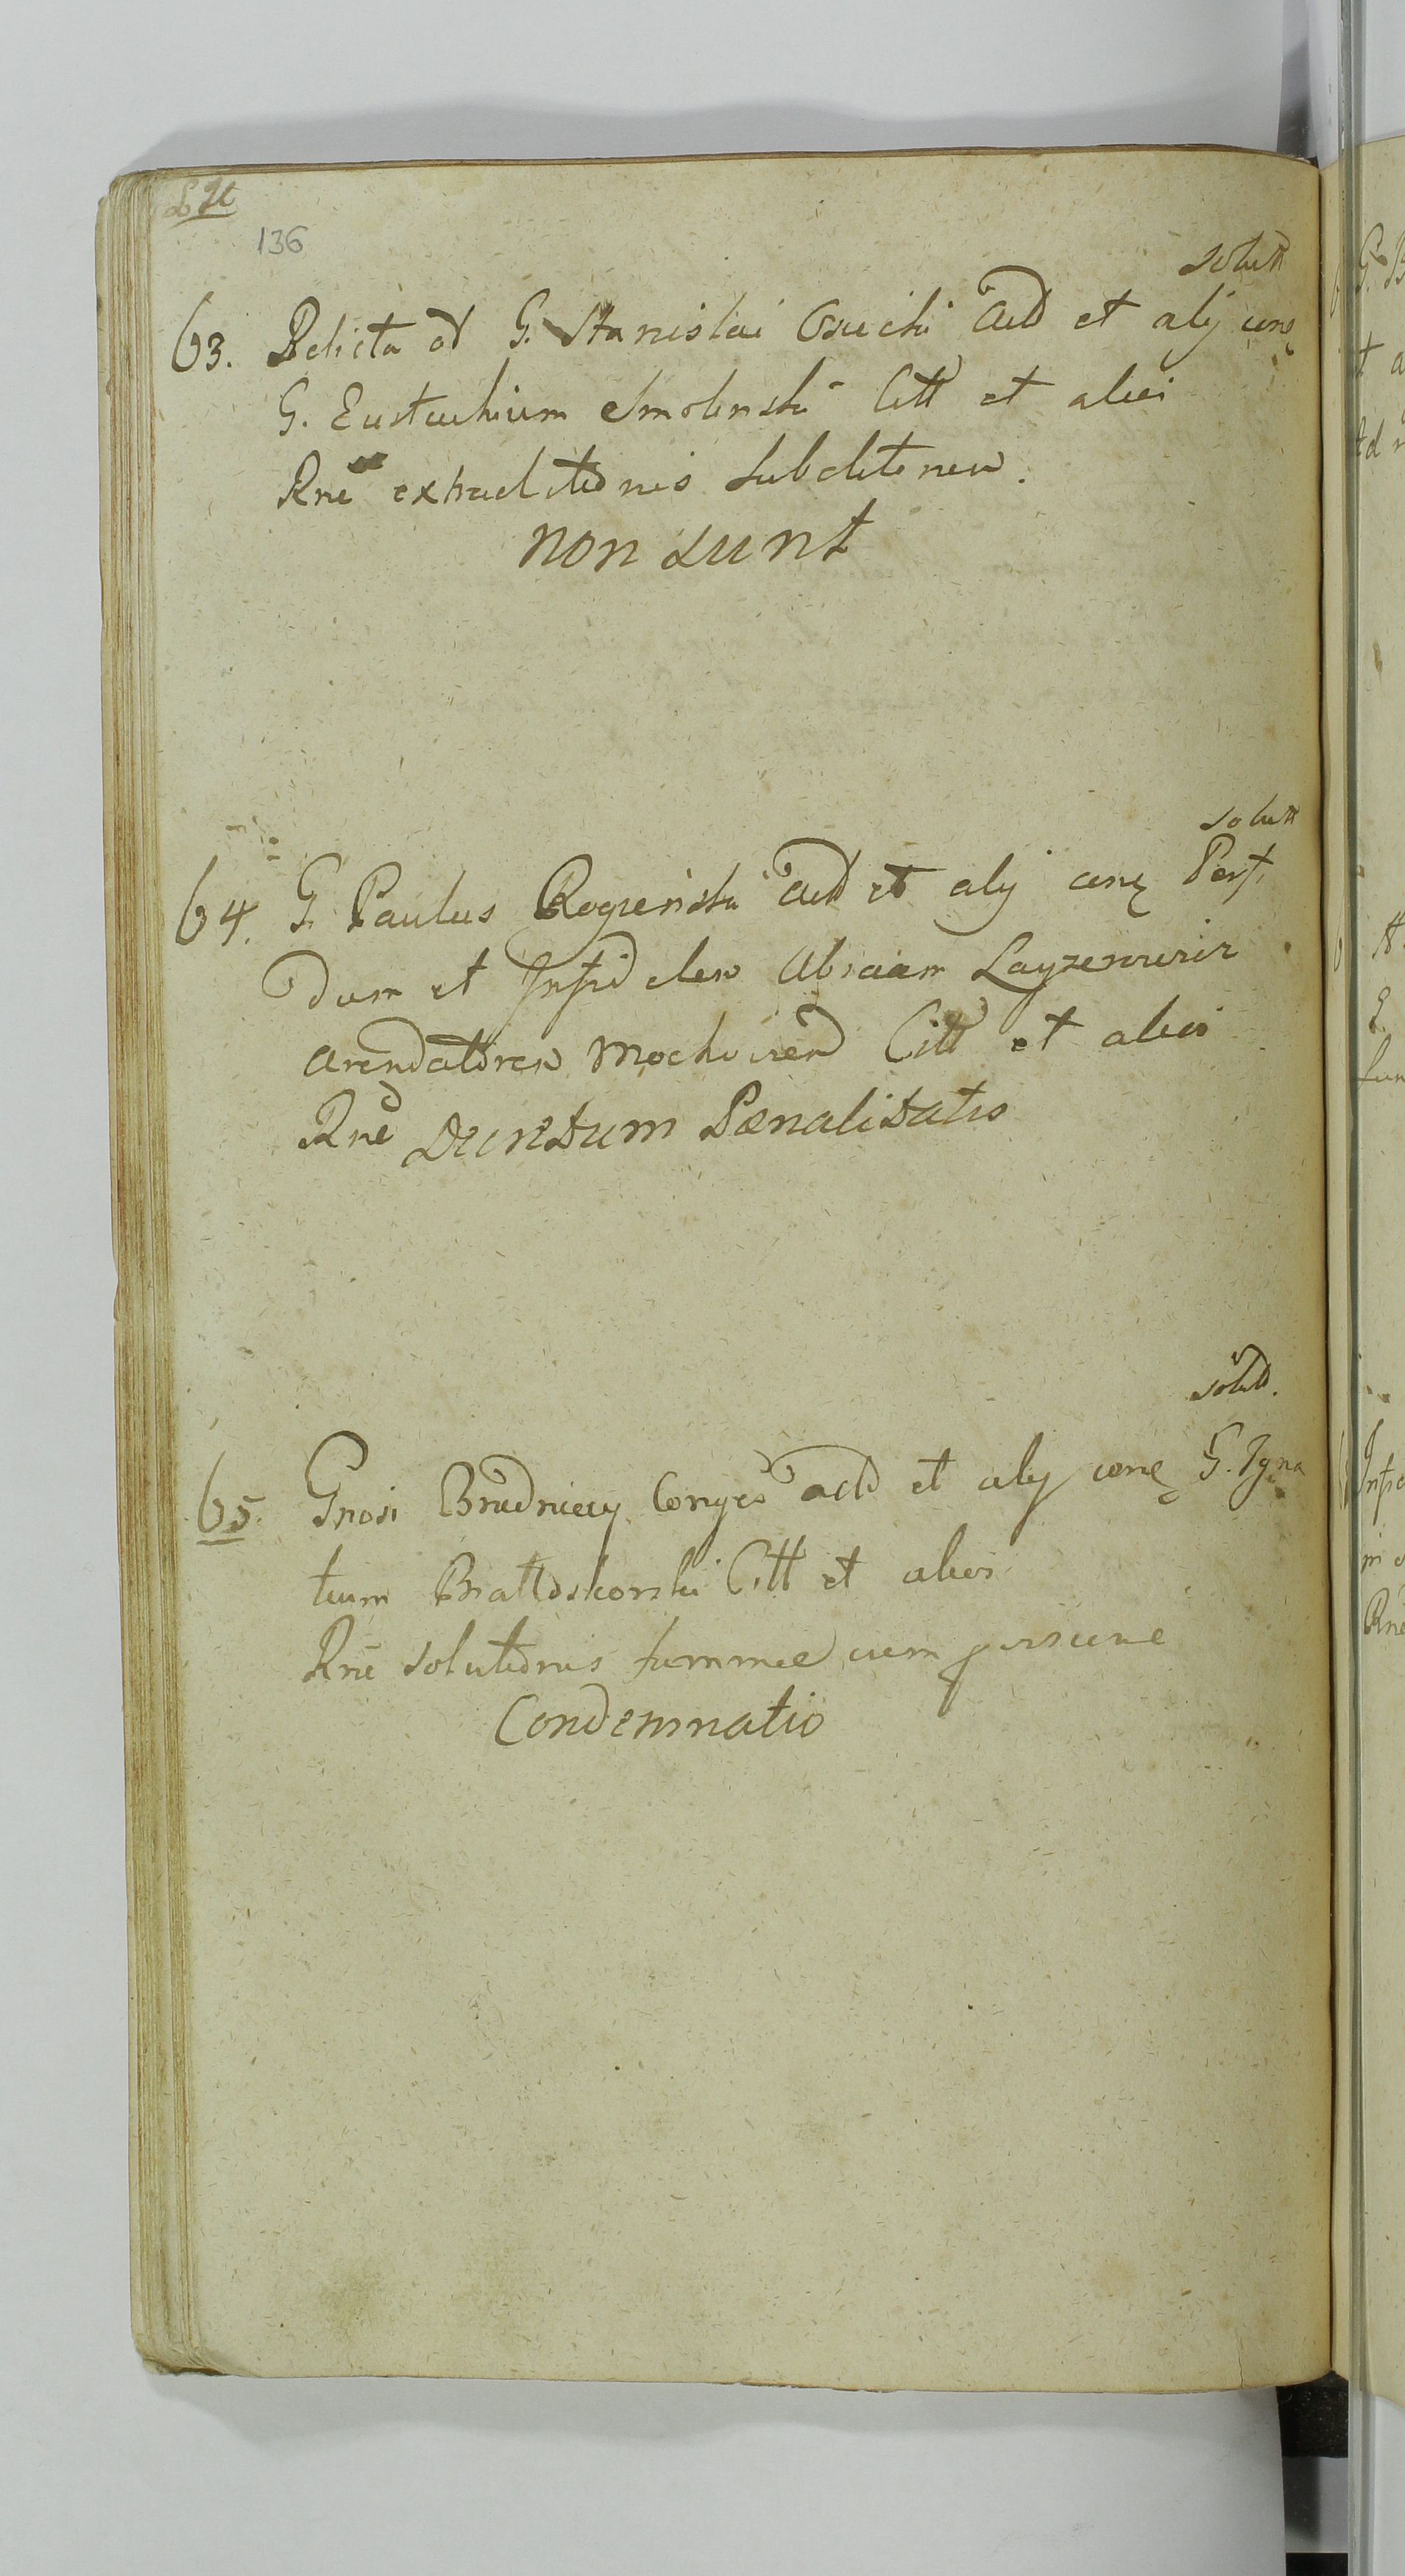 136
solutt
63. Relicta ol G. Stanislai Osucki Actt et alij conq
G. Eustachium Smolenski Citt et alios
Rne extraditionis subditorum.
non sunt
solutt
64. G. Paulus Rogienski Actt et alij conq Perf.
dum et Infidelem Abraam Layzerowicz
arendatorem Mochoviens Citt et alios
Rne Decretum Pœnalitatis
solutt.
65. Gnosi Brudnicey Conges actt et alij conq G. Igna
tium Brattoskorski Citt et alios
Rne solutionis summae cum
Condemnatio